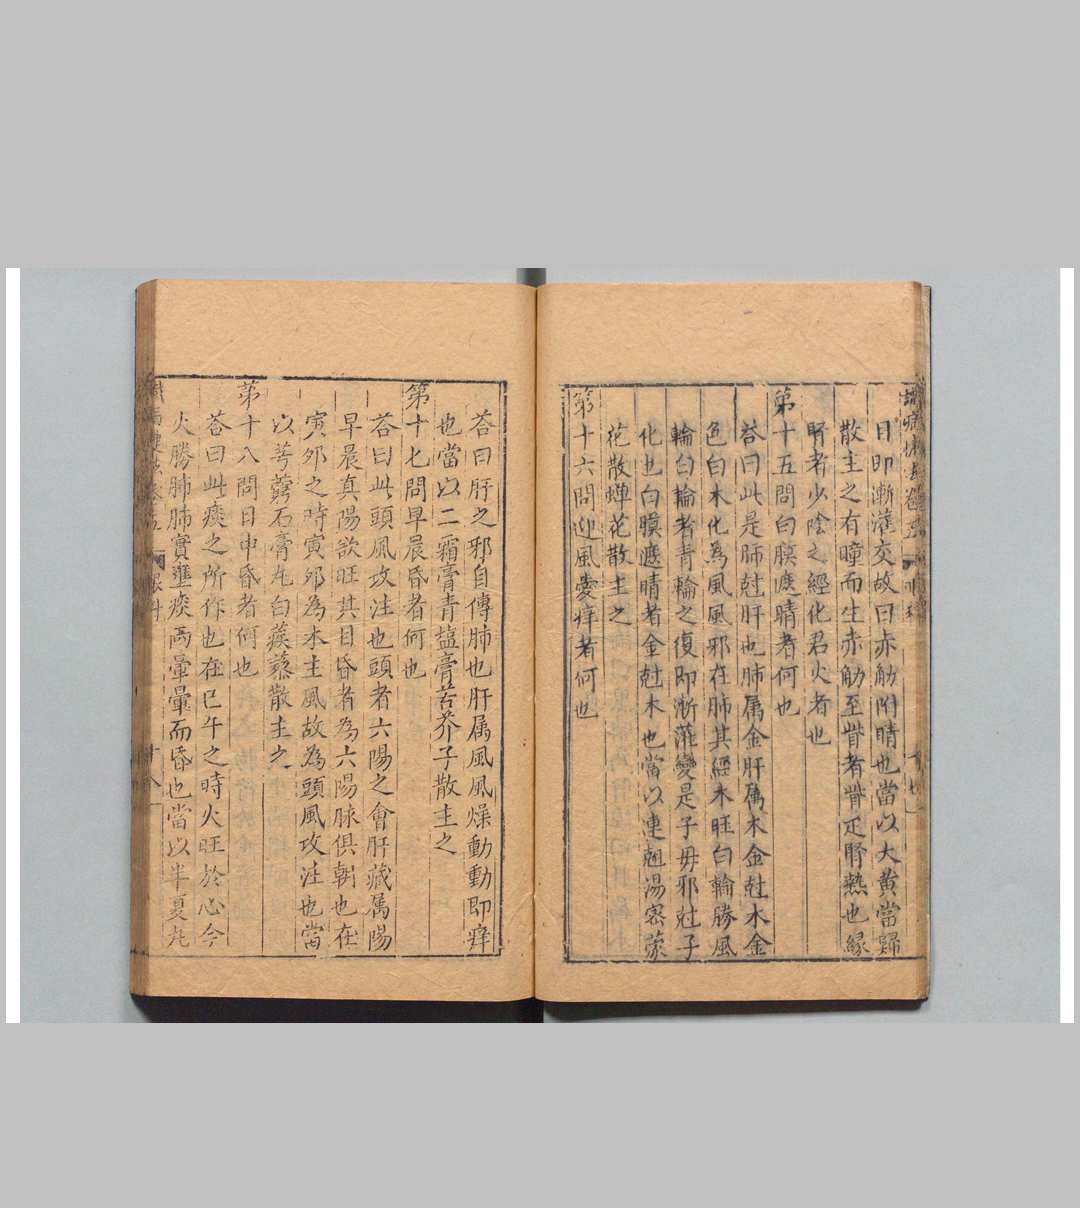 目卽漸灌交故曰赤觔附睛也當以大黃當歸
散主之有瞳而生赤觔至眥者眥疋腎熱也緣
腎者少陰之經化君火者也
第十五問白膜遮睛者何也
荅曰此是肺尅肝也肺属金肝属木金尅木金
色白木化為風風邪在肺其經木旺白輪勝風
輪白輪者青輪之復即漸灌變是子毋邪尅子
化也白膜遮睛者金尅木也當以連翹湯密蒙
花散蟬花散主之
第十六問迎風愛痒者何也
荅曰肝之邪自傳肺也肝属風風燥動動即痒
也當以二霜膏青塩膏苦芥子散主之
第十七問早晨昏者何也
荅曰此頭風攻注也頭者六陽之會肝藏属陽
早晨真陽欲旺其目昏者為六陽脉俱朝也在
寅夘之時寅夘為木主風故為頭風攻注也當
以芎藭石膏丸白蒺藜散主之
第十八問日中昏者何也
荅曰此痰之所作也在巳午之時火旺於心今
火勝肺肺實壅痰而暈暈而昏也當以半夏丸